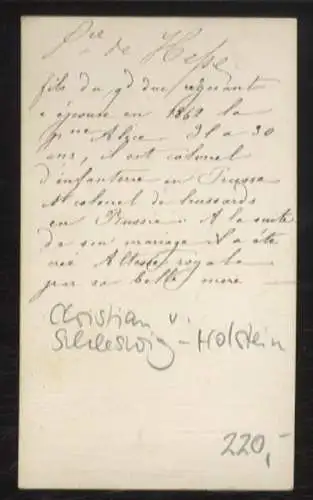 Pce de Hesse
fils du gd duc régnant
a épousé en 1862 la
pcesse Alice Il a 30
ans, il est colonel
d'infanterie en Prusse
et colonel de hussards
en Russie. A la suite
de son mariage il a été
créé Altesse royale
par sa belle mère
Christian v.
Schleswig-Holstein
220,-